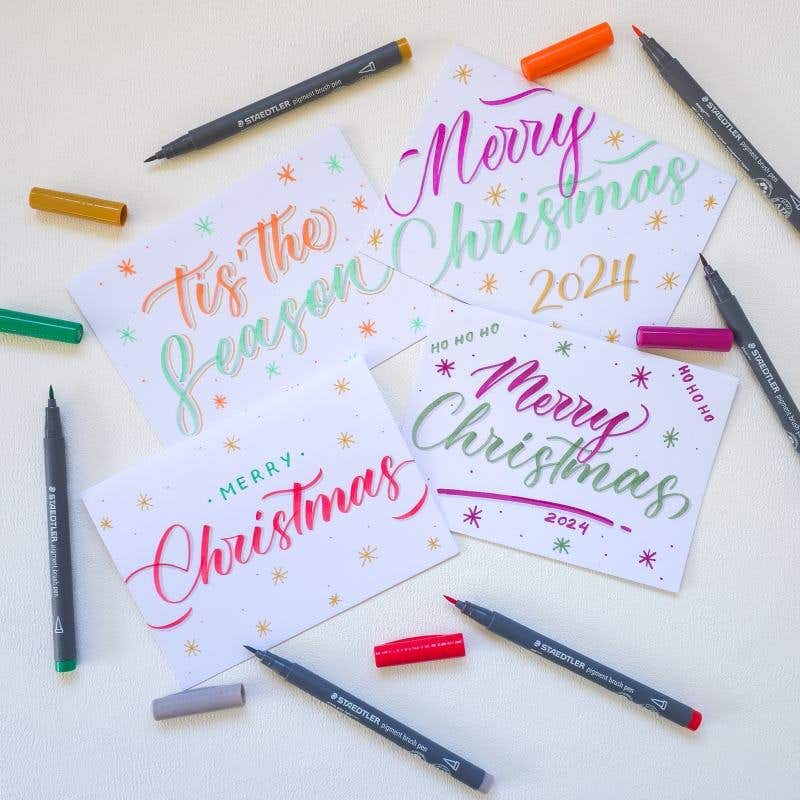 STAEDTLER pigment brush pen
Merry
Christmas
2024
tis' the
Season
HO HO HO
HO HO HO
Merry
Christmas
2024
MERRY
Christmas
STAEDTLER pigment brush pen
STAEDTLER pigment brush pen
STAEDTLER pigment brush pen
STAEDTLER pigment brush pen
STAEDTLER pigment brush pen